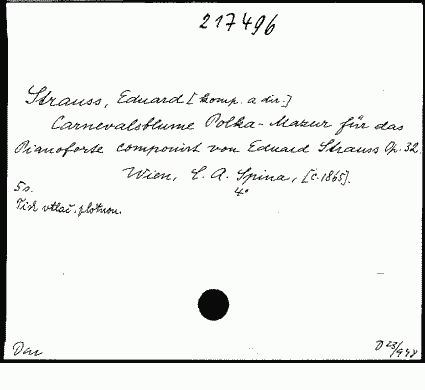 217496
Strauss, Eduard [komp. a dir.]
Carnevalsblume Polka-Mazur für das
Pianoforte componirt von Eduard Strauss Op. 32.
Wien, C. A. Spina, [c. 1865].
5 s. 4°
Tisk vtlač. plotnou.
Dar D 23/948